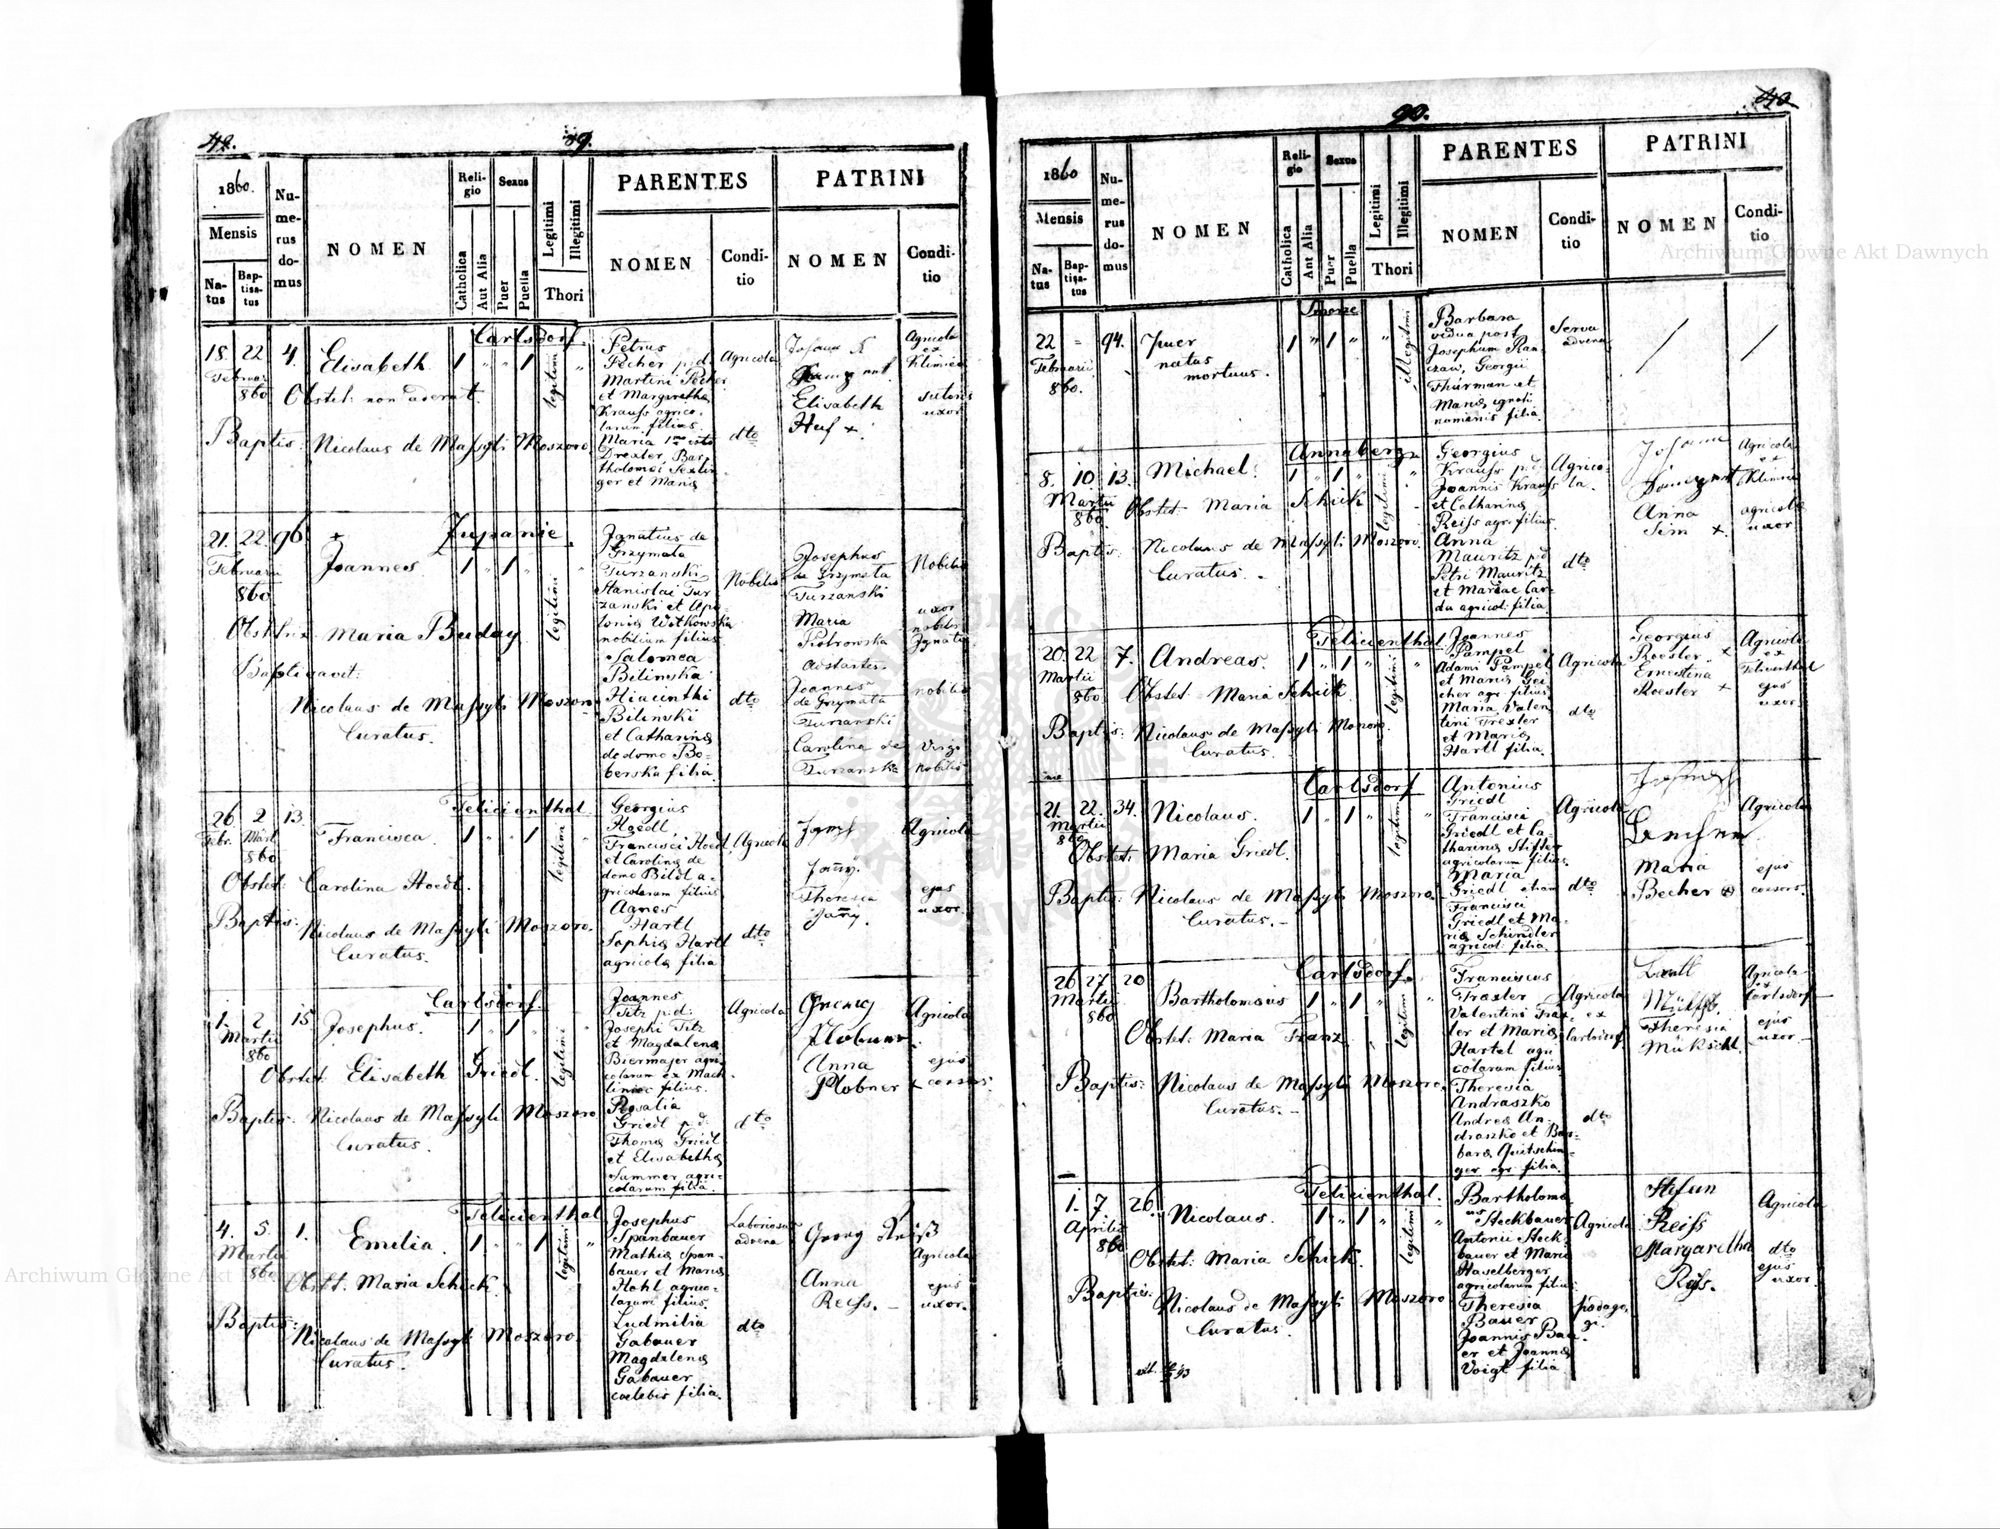 89.
1860.
Mensis
Natus
Baptisatus
Numerus domus
NOMEN
Religio
Catholica
Aut Alia
Sexus
Puer
Puella
Legitimi
Illegitimi
Thori
PARENTES
NOMEN
Conditio
PATRINI
NOMEN
Conditio
Carlsdorf.
18. 22 4. Elisabeth. 1 " " 1 legitimi "
Februar
860
Obstet: non aderat.
Baptis: Nicolaus de Massyli Moszoro
Petrus
Pecher p.d.
Martini Pecher
et Margaretha
Krauss agrico-
larum filius.
Maria 1mo voto
Drexler, Bar-
tholomei Sexlin-
ger et Maria
Agricola
dto
Elisabeth
Huf +.
Agricola
ex
Klimiec
sutoris
uxor
Zupanie.
21. 22 96. +
Februarii
860
Joannes 1 " 1 " legitimi "
Obstetrix Maria Buday
Baptisavit:
Nicolaus de Massyli Moszoro
Curatus.
Ignatius de
Grzymala
Turzanski
Stanislai Tur-
zanski et Apo-
lonia Witkowska
nobilium filius
Salomea
Bilinska
Hiacinthi
Bilinski
et Catharina
de domo Bo-
berska filia.
Nobilis
dto
Josephus
de Grzymala
Turzanski
Maria
Piotrowska
Adstantes.
Joannes
de Grzymala
Turzanski
Carolina de
Turzanska
Nobilis
uxor
nobilis
Ignatii
nobilis
Virgo
nobilis
Felicienthal.
26 2 13.
Febr. Mart.
860
Francisca 1 " " 1 legitima "
Obstet: Carolina Hoedl.
Baptis: Nicolaus de Massyli Moszoro.
Curatus.
Georgius
Hoedl,
Francisci Hoedl
et Carolina de
domo Bildl a-
gricolarum filius
Agnes
Hartl
Sophia Hartl
agricola filia
Agricola
dto
Theresia
Agricola
ejus
uxor.
Carlsdorf.
1. 2 15.
Martii
860
Josephus. 1 " 1 " legitimi "
Obstet: Elisabeth Griedl.
Baptis: Nicolaus de Massyli Moszoro
Curatus.
Joannes
Titz p.d:
Josephi Titz
et Magdalena
Biermajer agri-
colarum ex Mach-
liniec filius.
Rosalia
Griedl p.d.
Thoma Griedl
et Elisabetha
Summer agri-
colarum filia.
Agricola
dto
Anna
Plobner +
Agricola
ejus
consors.
Felicienthal
4. 5. 1.
Martii
860
Emilia. 1 " " 1 legitimi "
Obstt. Maria Schick.
Baptis: Nicolaus de Massyli Moszoro.
Curatus.
Josephus
Spanbauer
Mathia Span-
bauer et Maria
Hahl agrico-
larum filius.
Ludmilia
Gabauer
Magdalena
Gabauer
coelebis filia.
Laboriosus
advena
dto
Georg Reiß
Anna
Reiss. –
Agricola
ejus
uxor.
90.
1860
Mensis
Natus
Baptisatus
Numerus domus
NOMEN
Religio
Catholica
Aut Alia
Sexus
Puer
Puella
Legitimi
Illegitimi
Thori
PARENTES
NOMEN
Conditio
PATRINI
NOMEN
Conditio
Smorze
22 – 94.
Februarii
860.
Puer
natus
mortuus.
1 " 1 " " illegitimi
Barbara
vidua post
Josephum Ran-
czaw, Georgii
Thürman et
Maria ignoti
nominis filia.
Serva
advena
Annaberg
8. 10 13. Michael. 1 " 1 " legitimi "
Martii
860
Obstet. Maria Schick
Baptis: Nicolaus de Massyli Moszoro.
Curatus. –
Georgius
Krauss p.d.
Joannis Krauss
et Catharina
Reiss agr. filius.
Anna
Mauritz p.d.
Petri Mauritz
et Mariae Car-
da agricol: filia.
Agrico-
la.
dto
Anna
Sim +.
Agricola
ex
Klimiec
agricola
uxor
Felicienthal.
20. 22 7. Andreas. 1 " 1 " legitimi "
Martii
860
Obstet. Maria Schick
Baptis: Nicolaus de Massyli Moszoro.
Curatus.
Joannes
Pampel
Adami Pampel
et Maria Gei-
cher agr. filius
Maria Valen-
tini Trexler
et Maria
Hartl filia.
Agricola
dto
Georgius
Roesler +
Ernestina
Roesler +
Agricola
ex
Felicienthal
ejus
uxor
Carlsdorf
21. 22. 34. Nicolaus. 1 " 1 " legitimi "
Martii
860
Obstet: Maria Griedl.
Baptis: Nicolaus de Massyli Moszoro.
Curatus. –
Antonius
Griedl
Francisci
Griedl et Ca-
tharina Stifter
agricolarum filius.
Maria
Griedl etiam
Francisci
Griedl et Ma-
ria Schindler
agricol: filia.
Agricola
dto
Maria
Becher
Agricola
ejus
consors.
Carlsdorf.
26 27 20
Martii
860
Bartholomaus 1 " 1 " legitimi "
Obstet: Maria Franz
Baptis: Nicolaus de Massyli Moszoro.
Curatus. –
Franciscus
Traxler
Valentini Trax-
ler et Maria
Hartel agri-
colarum filius
Theresia
Andraszko
Andrea An-
draszko et Bar-
bara Quitschin-
ger agr. filia.
Agricola
ex
Carlsdorf
dto
Theresia
Mükschl.
Agricola
ex
Carlsdorf
ejus
uxor –
Felicienthal.
1. 7. 26. Nicolaus. 1 " 1 " legitimi "
Aprilis
860
Obstet: Maria Schick.
Baptis: Nicolaus de Massyli Moszoro
Curatus.
Bartholoma-
us Steckbauer
Antonii Steck-
bauer et Maria
Haselberger
agricolarum filius.
Theresia
Bauer
Joannis Bau-
er et Joanna
Voigt filia
Agricola
Stefan
Reiss
Margaretha
Reiss.
Agricola
dto
ejus
uxor.
Archiwum Główne Akt Dawnych
Archiwum Główne Akt Dawnych